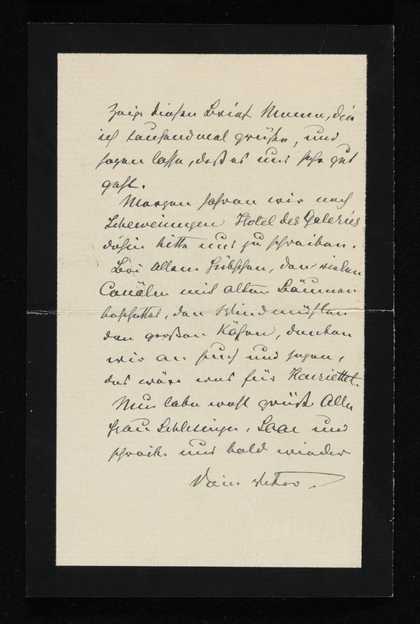 Zeige diesen Brief Mama, die
ich tausendmal grüße, und
sagen lasse, daß es uns sehr gut
geht.
Morgen fahren wir nach
Scheveningen Hotel des Galeries
dahin bitte uns zu schreiben.
Bei allem Hübschen, den vielen
Canälen mit alten Bäumen
beschattet, den Windmühlen
den großen Käsen, denken
wir an Euch und sagen,
das wäre was für Henriette.
Nun lebe wohl grüße Alle
Frau Schlesinger, Saar und
schreibe uns bald wieder
Dein